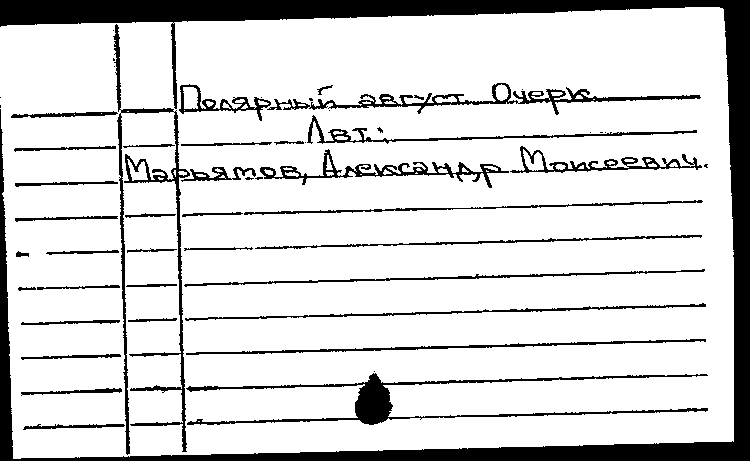 Полярный август. Очерк.
Авт.:
Марьямов, Александр Моисеевич.